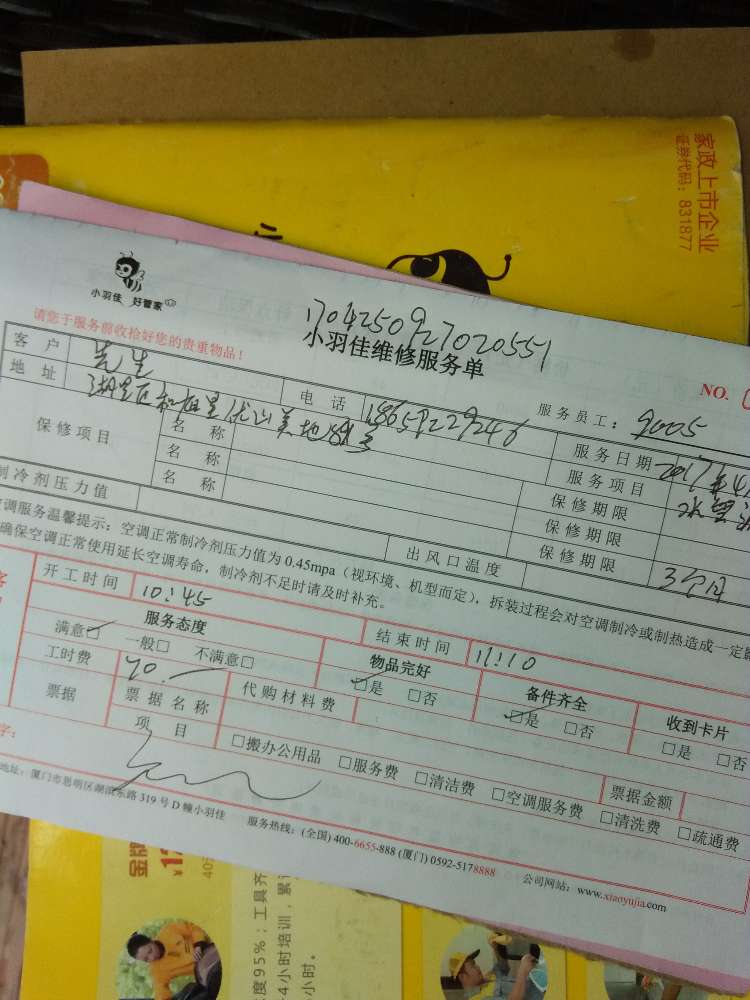 家政上市企业
证券代码：831877
小羽佳 好管家
请您于服务前收拾好您的贵重物品！
1704250927020551
小羽佳维修服务单
NO.
客户 先生 电话 服务员工：9005
地址 湖里区 服务日期 2017年4
保修项目 名称 服务项目
名称 保修期限
名称 保修期限
保修期限 3个月
制冷剂压力值 出风口温度
调服务温馨提示：空调正常制冷剂压力值为 0.45mpa（视环境、机型而定），拆装过程会对空调制冷或制热造成一定影
确保空调正常使用延长空调寿命，制冷剂不足时请及时补充。
开工时间 10:45 结束时间 11:10
服务态度 物品完好 备件齐全 收到卡片
满意□ 一般□ 不满意□ □是 □否 □是 □否 □是 □否
工时费 代购材料费
票据 票据名称 票据金额
项目 □搬办公用品 □服务费 □清洁费 □空调服务费 □清洗费 □疏通费
字：
地址：厦门市思明区湖滨东路 319 号 D 幢小羽佳 服务热线：(全国) 400-6655-888 (厦门) 0592-5178888 公司网站：www.xiaoyujia.com
金牌
40
度95%；工具齐
4小时培训，累
小时。